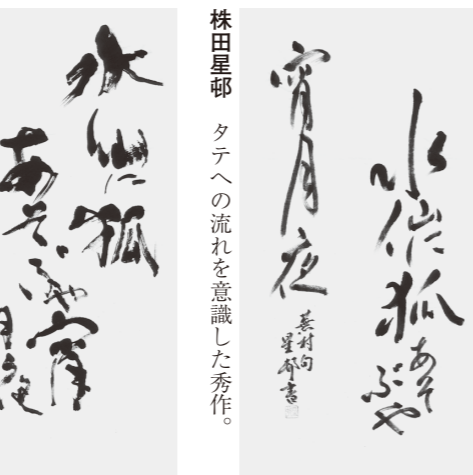 水仙に狐
あそ
ぶや
宵月夜
蕪村句
星邨書
株田星邨 タテへの流れを意識した秀作。
水仙に狐
あそぶや
宵
月夜